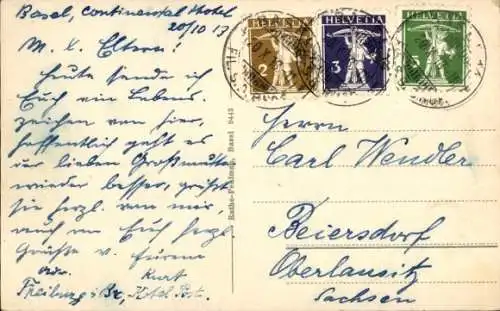 Basel, Continental Hotel
20/10 13
M. l. Eltern!
Heute sende ich
Euch ein Lebens-
zeichen von hier,
hoffentlich geht es
der lieben Großmutter
wieder besser, grüßt
sie herzl. von mir,
auch an Euch herzl.
Grüße v. Eurem
Kurt
Adr. Freiburg i. Br., Hotel Post.
Rathe-Fehlmann, Basel 9443
HELVETIA
2
HELVETIA
3
HELVETIA
5
Herrn
Carl Wendler
Beiersdorf
Oberlausitz
Sachsen